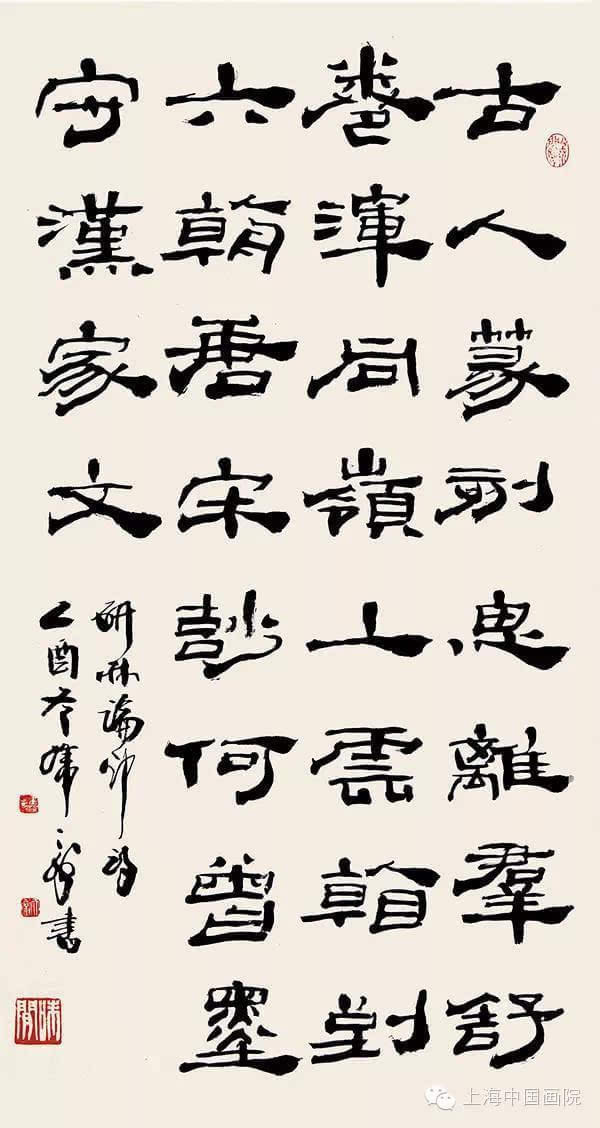 古人篆刻思離羣舒
卷渾同嶺上雲看到
六朝唐宋妙何曾墨
守漢家文
研林論印詩
乙酉書
上海中国画院